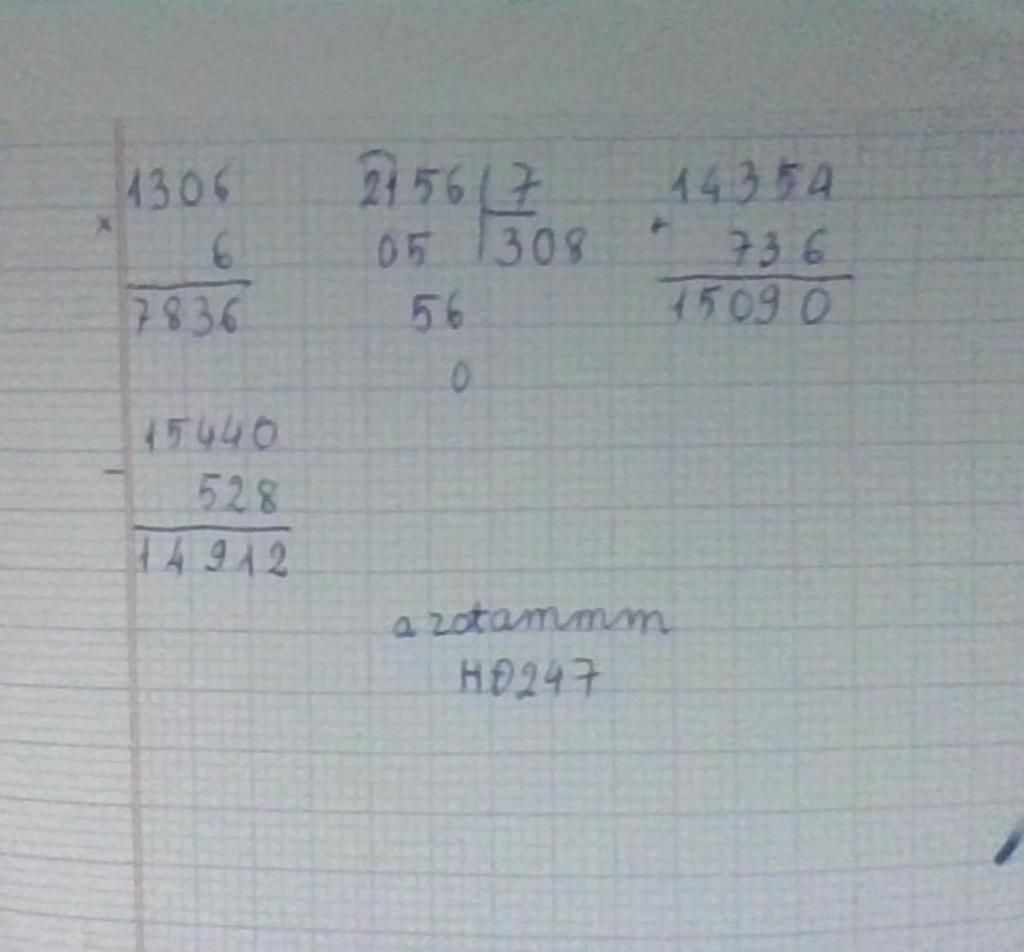 1306 2156 7 14354
× 6 05 308 + 736
7836 56 15090
0
15440
- 528
14912
azotammm
HD247